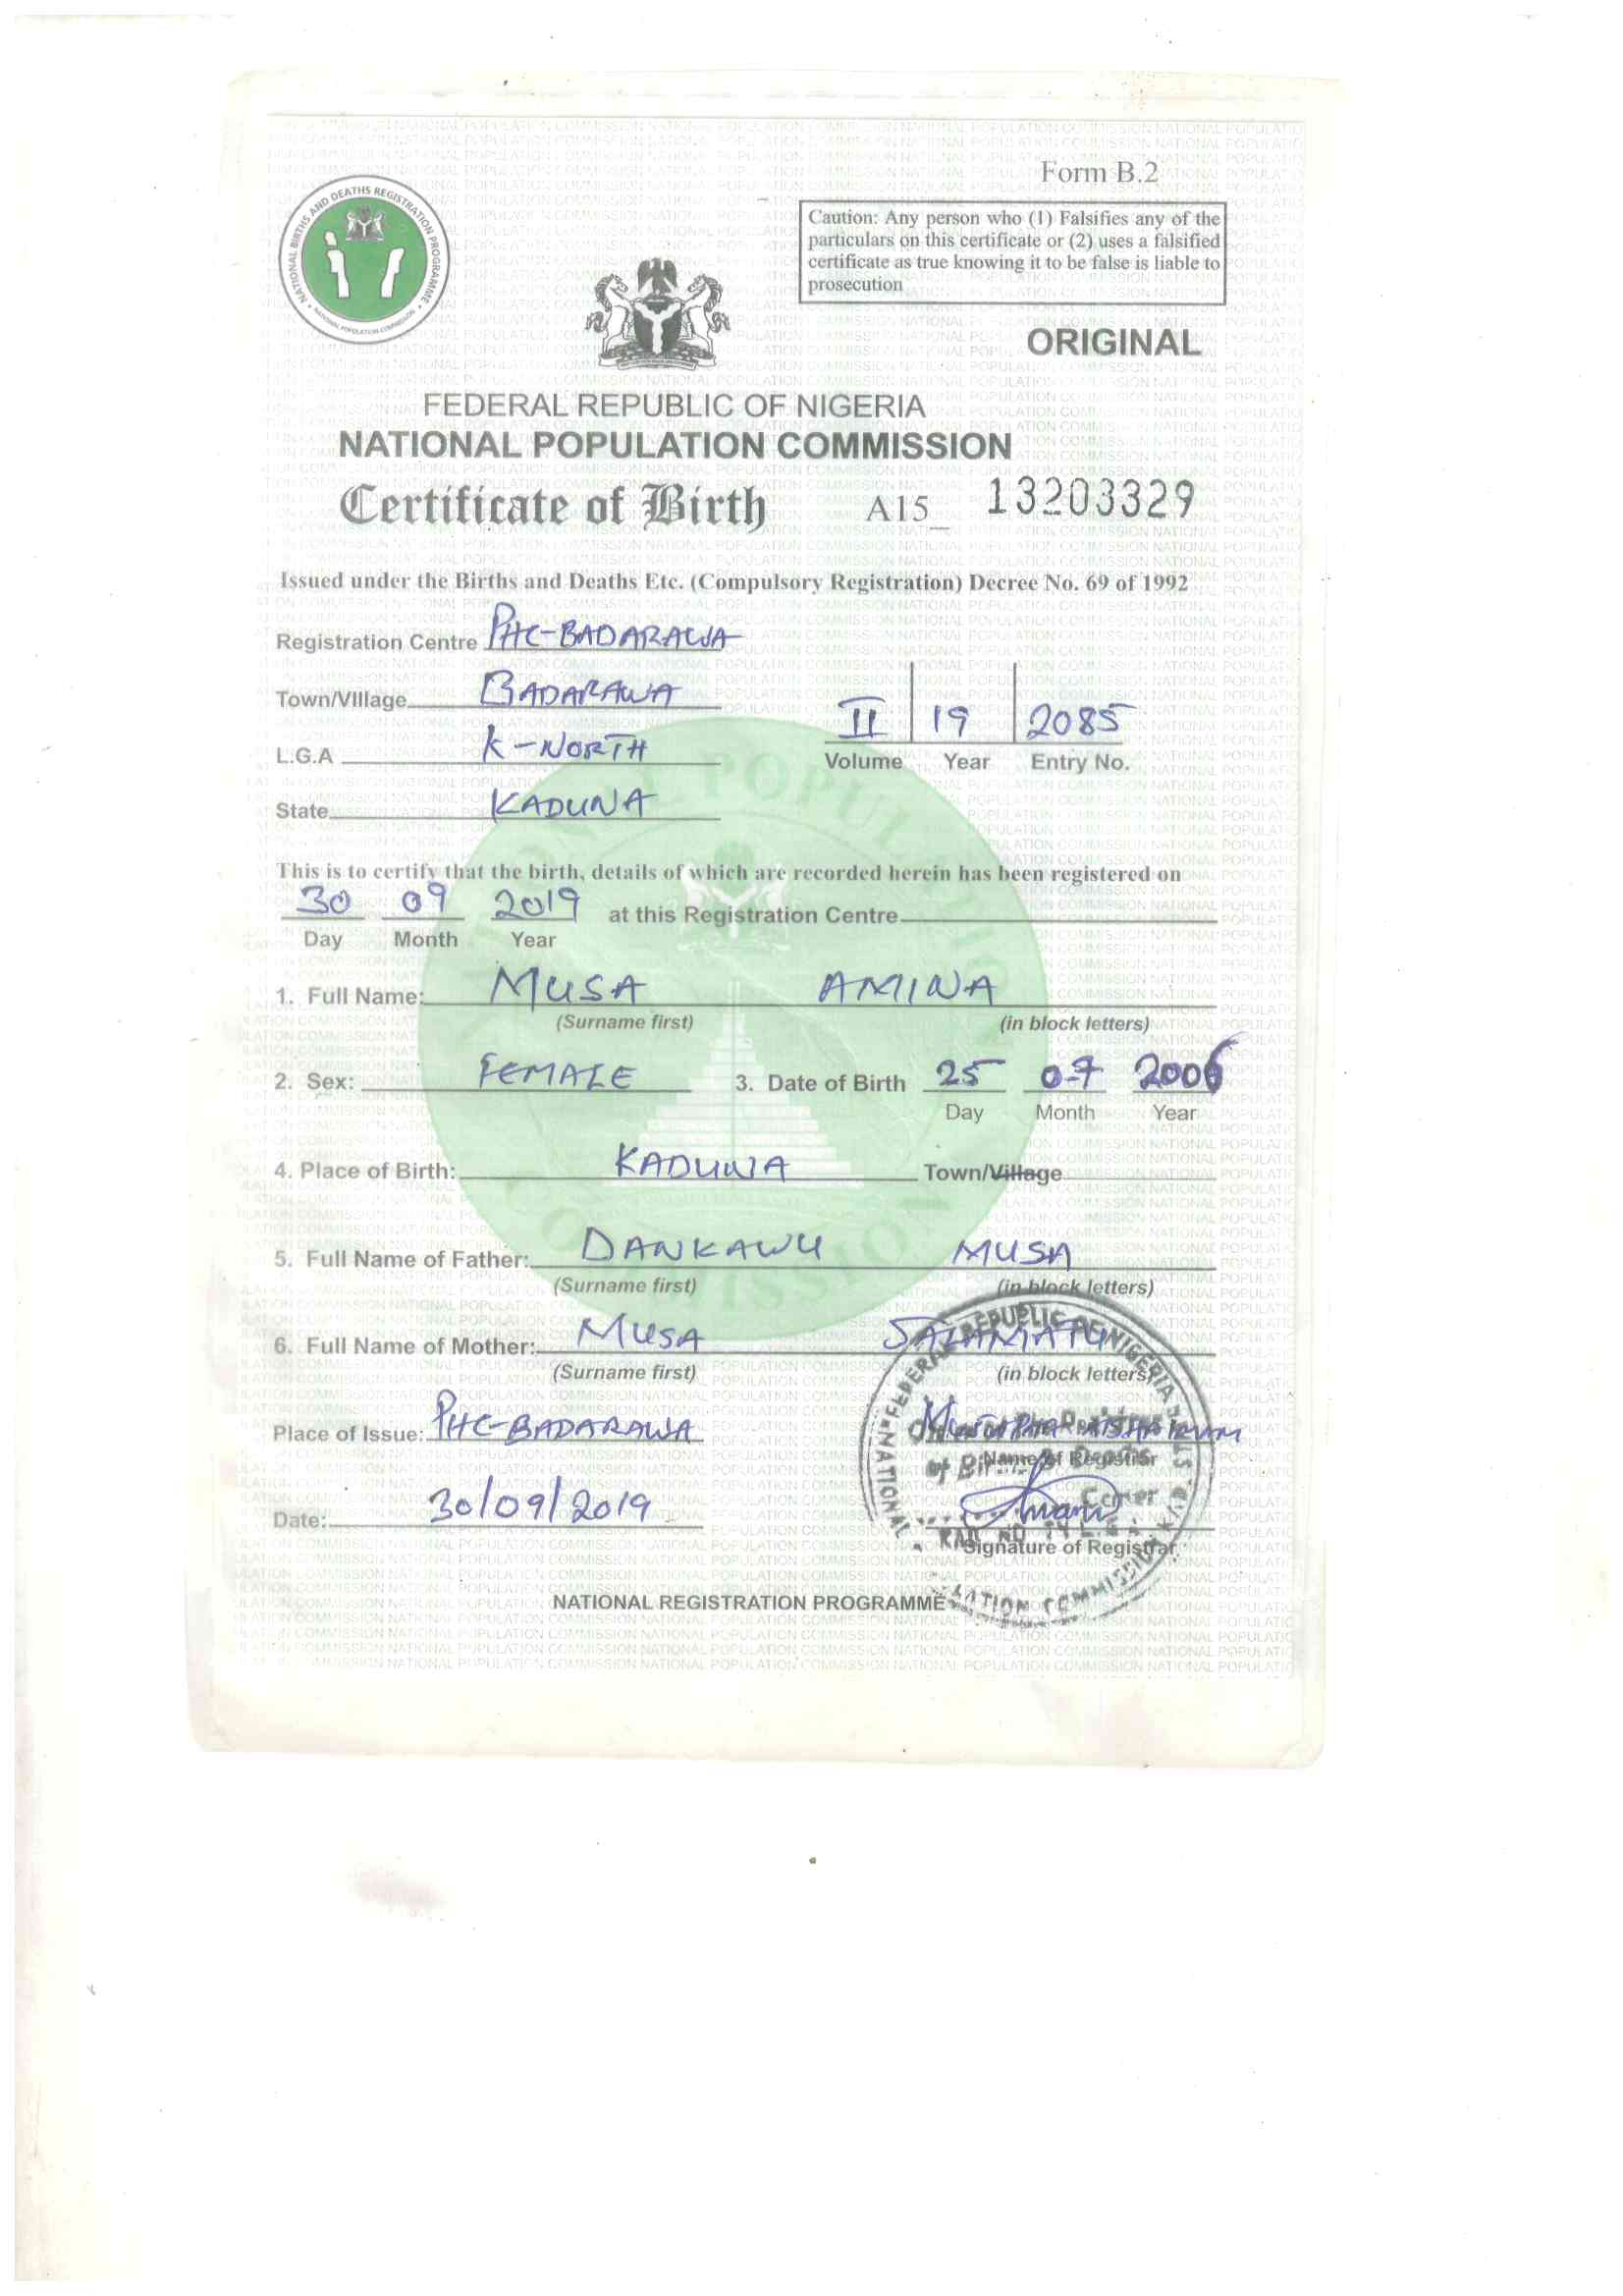 NATIONAL BIRTHS AND DEATHS REGISTRATION PROGRAMME
NATIONAL POPULATION COMMISSION
Form B.2
Caution: Any person who (1) Falsifies any of the
particulars on this certificate or (2) uses a falsified
certificate as true knowing it to be false is liable to
prosecution
ORIGINAL
FEDERAL REPUBLIC OF NIGERIA
NATIONAL POPULATION COMMISSION
Certificate of Birth A15_ 13203329
Issued under the Births and Deaths Etc. (Compulsory Registration) Decree No. 69 of 1992
Registration Centre PHC-BADARAWA
Town/Village BADARAWA
II 19 2085
L.G.A K-NORTH
Volume Year Entry No.
State KADUNA
This is to certify that the birth, details of which are recorded herein has been registered on
30 09 2019 at this Registration Centre
Day Month Year
1. Full Name: MUSA AMINA
(Surname first) (in block letters)
2. Sex: FEMALE 3. Date of Birth 25 07 2006
Day Month Year
4. Place of Birth: KADUNA Town/Village
5. Full Name of Father: DANKAWU MUSA
(Surname first) (in block letters)
6. Full Name of Mother: MUSA SALAMATU
(Surname first) (in block letters)
Place of Issue: PHC-BADARAWA
Name of Registrar
Date: 30/09/2019
Signature of Registrar
NATIONAL REGISTRATION PROGRAMME